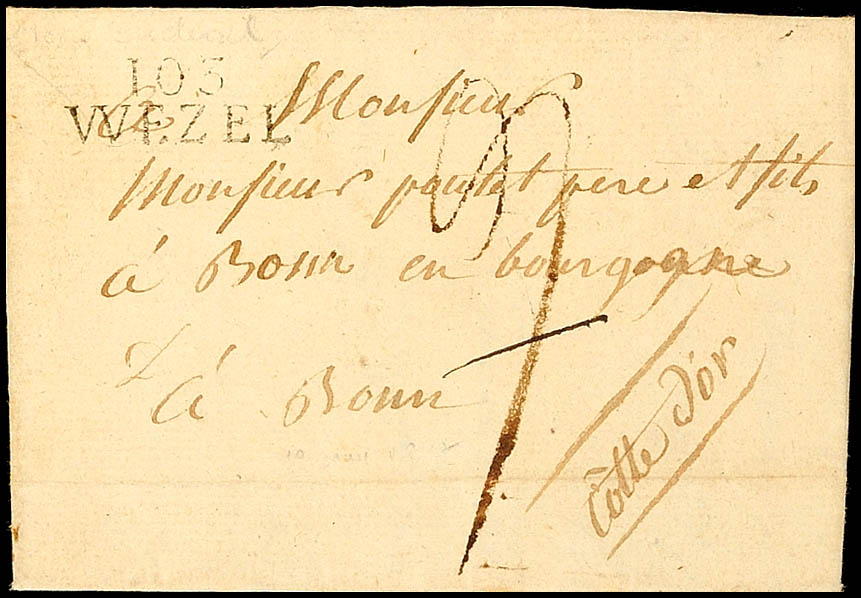 105
WEZEL
A Monsieur
Monsieur poulet pere et fils
à Bonn en bourgogne
à Bonn
Côtte d'or